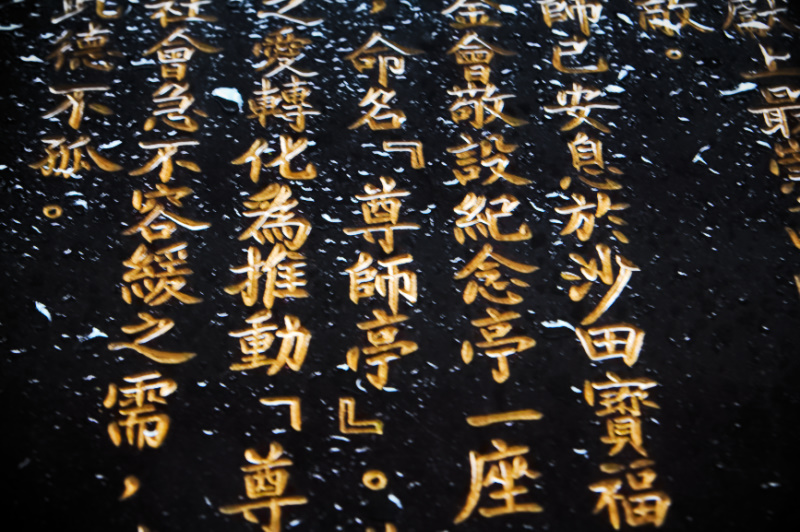 獻上最
敬。
師已安息於沙田寶福
金會敬設紀念亭一座
，命名『尊師亭』。
之愛轉化為推動「尊
社會急不容緩之需，
此德不孤。